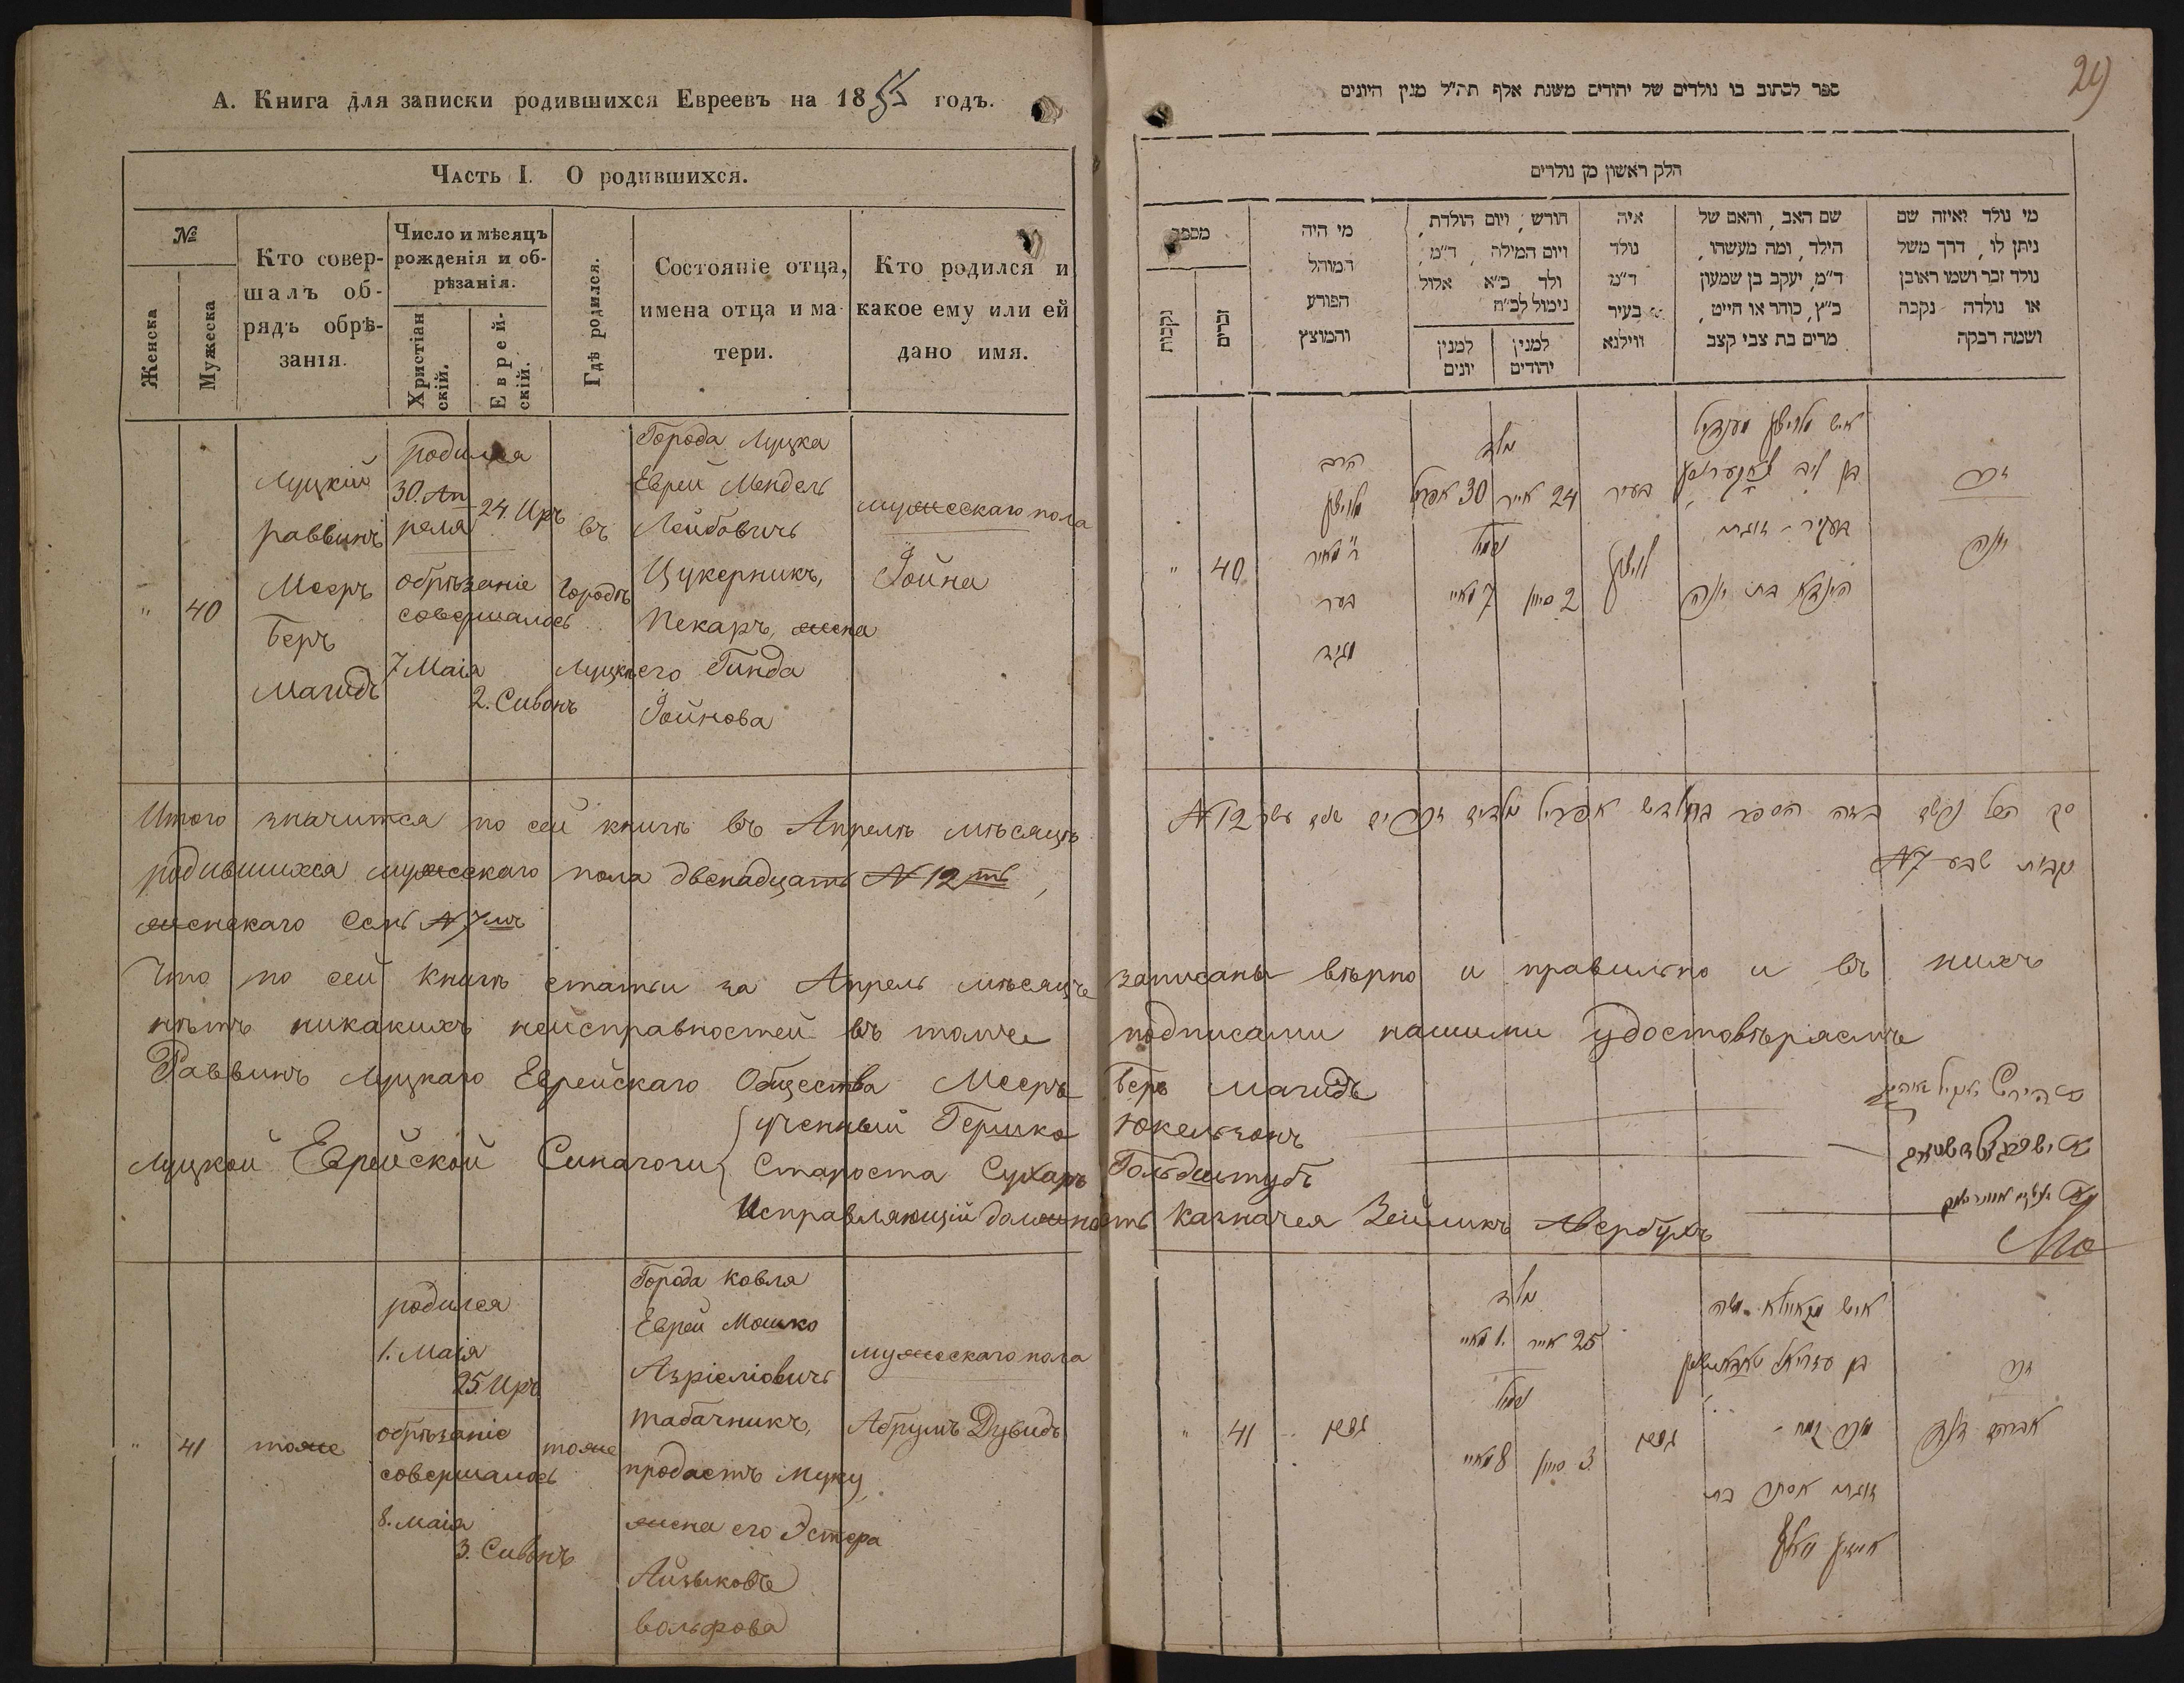 А. Книга для записки родившихся Евреевъ на 1855 годъ.
Часть I. О родившихся.
№
Женска
Мужеска
Кто совер-
шалъ об-
рядъ обрѣ-
занія.
Число и мѣсяцъ
рожденія и об-
рѣзанія.
Христіан
скій.
Еврей-
скій.
Гдѣ родился.
Состояніе отца,
имена отца и ма
тери.
Кто родился и
какое ему или ей
дано имя.
" 40
Луцкій
раввинъ
Меэръ
Беръ
Магидъ
родился
30. Ап
реля
24. Иръ
обрѣзаніе
совершалось
7 Маія
2. Сивонъ
въ
Городѣ
Луцкѣ
Города Луцка
Еврей Мендель
Лейбовичъ
Цукерникъ,
Пекаръ, жена
его Гинда
Іойнова
мужескаго пола
Іойна
Итого значится по сей книгѣ въ Апрелѣ мѣсяцѣ
родившихся мужескаго пола двенадцать № 12ть,
женскаго семь № 7мъ
Что по сей книгѣ статьи за Апрель мѣсяцъ записаны вѣрно и правильно и въ нихъ
нѣтъ никакихъ неисправностей въ томъ подписами нашими удостовѣряемъ
Раввинъ Луцкаго Еврейскаго Общества Меэръ Беръ Магидъ
Луцкой Еврейской Синагоги
ученный Гершко Юкельзонъ
Староста Сухаръ Гольдштубъ
Исправляющій должность казначея Зейликъ Авербухъ
" 41
тоже
родился
1. Маія
25. Иръ
обрѣзаніе
совершалось
8. Маія
3. Сивонъ
тоже
Города Ковля
Еврей Мошко
Азріеліовичъ
табачникъ,
продаетъ муку
жена его Эстера
Айзыковъ
Вольфова
мужескаго пола
Абрумъ Дувидъ
29
ספר לכתוב בו נולדים של יהודים משנת אלף תה״ל מנין היונים
חלק ראשון מן נולדים
מי נולד ואיזה שם
ניתן לו, דרך משל
נולד זכר ושמו ראובן
או נולדה נקבה
ושמה רבקה
שם האב, והאם של
הילד, ומה מעשהו,
ד״מ, יעקב בן שמעון
כ״ץ, סוחר או חייט,
מרים בת צבי קצב
איה
נולד
ד״מ
בעיר
ווילנא
חורש, ויום הולדת,
ויום המילה, ד״מ,
ולד כ״א אלול
נימול לכ״ח
למנין
יהודים
למנין
יונים
מי היה
המוהל
הפורע
והמוצץ
מספר
זכרים
נקבות
זכר
יונה
בן ליב
הינדא בת יונה
בעיר
לוצק
נולד
24 אייר 30 אפריל
נימול
2 סיון 7 מאיי
הרב
לוצק
ר׳ מאיר
בער
מגיד
" 40
סך הכל נרשם בזה הספר בחודש אפריל נולדים זכרים שנים עשר № 12
נקבות שבע № 7
זכר
אברהם דוד
בן עזריאל
מוכר קמח
זוגתו אסתר בת
אייזיק וואלף
נולד
25 אייר 1. מאיי
נימול
3. סיון 8 מאיי
" 41